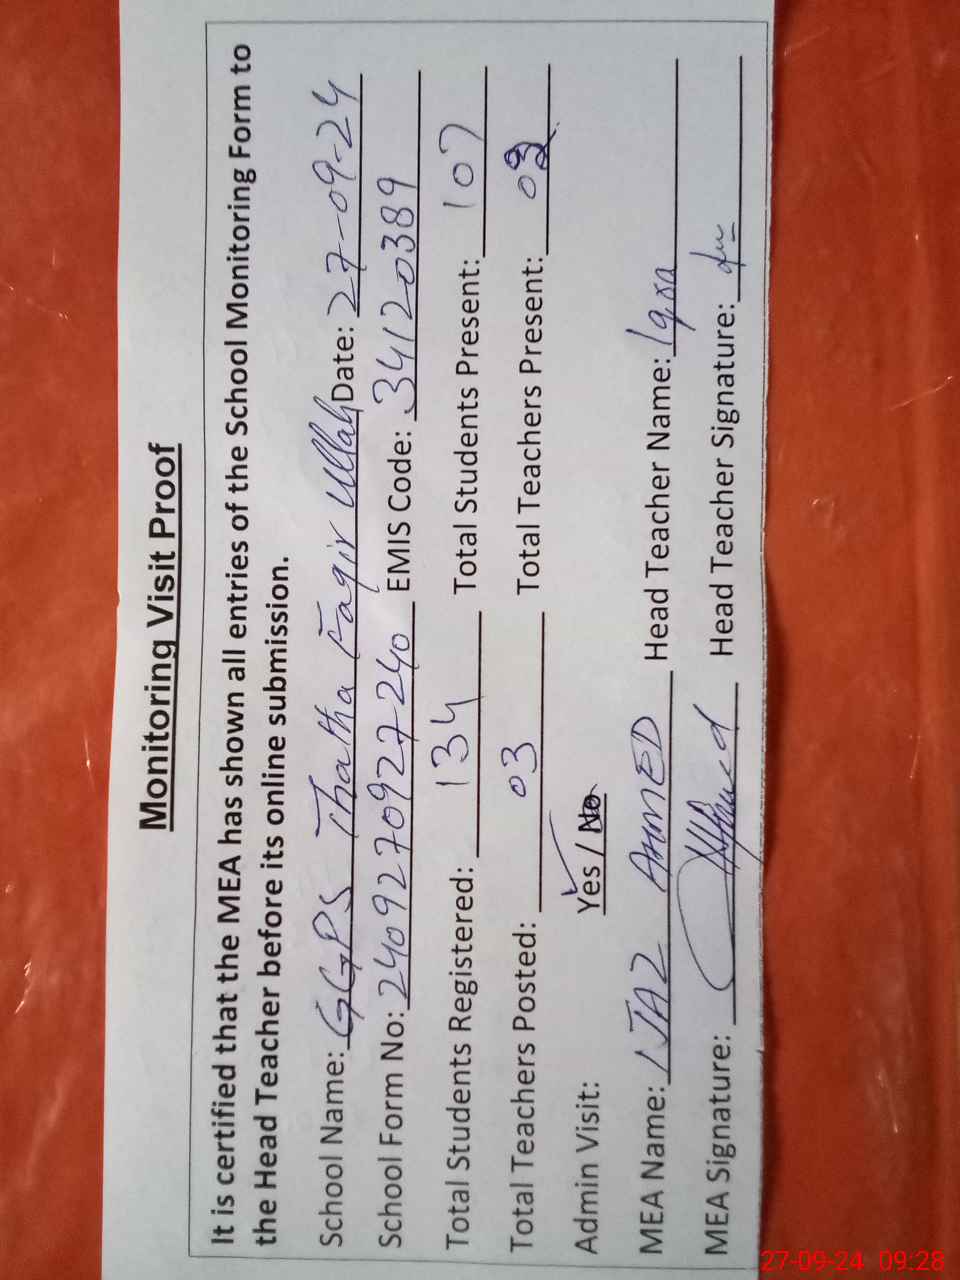 Monitoring Visit Proof
It is certified that the MEA has shown all entries of the School Monitoring Form to
the Head Teacher before its online submission.
School Name: GGPS Thatha Faqir Ullah Date: 27-09-24
School Form No: 2409270927240 EMIS Code: 34120389
Total Students Registered: 134 Total Students Present: 107
Total Teachers Posted: 03 Total Teachers Present: 03
Admin Visit: Yes / No
MEA Name: IJAZ AHMED Head Teacher Name: Iqra
MEA Signature: Head Teacher Signature:
27-09-24 09:28